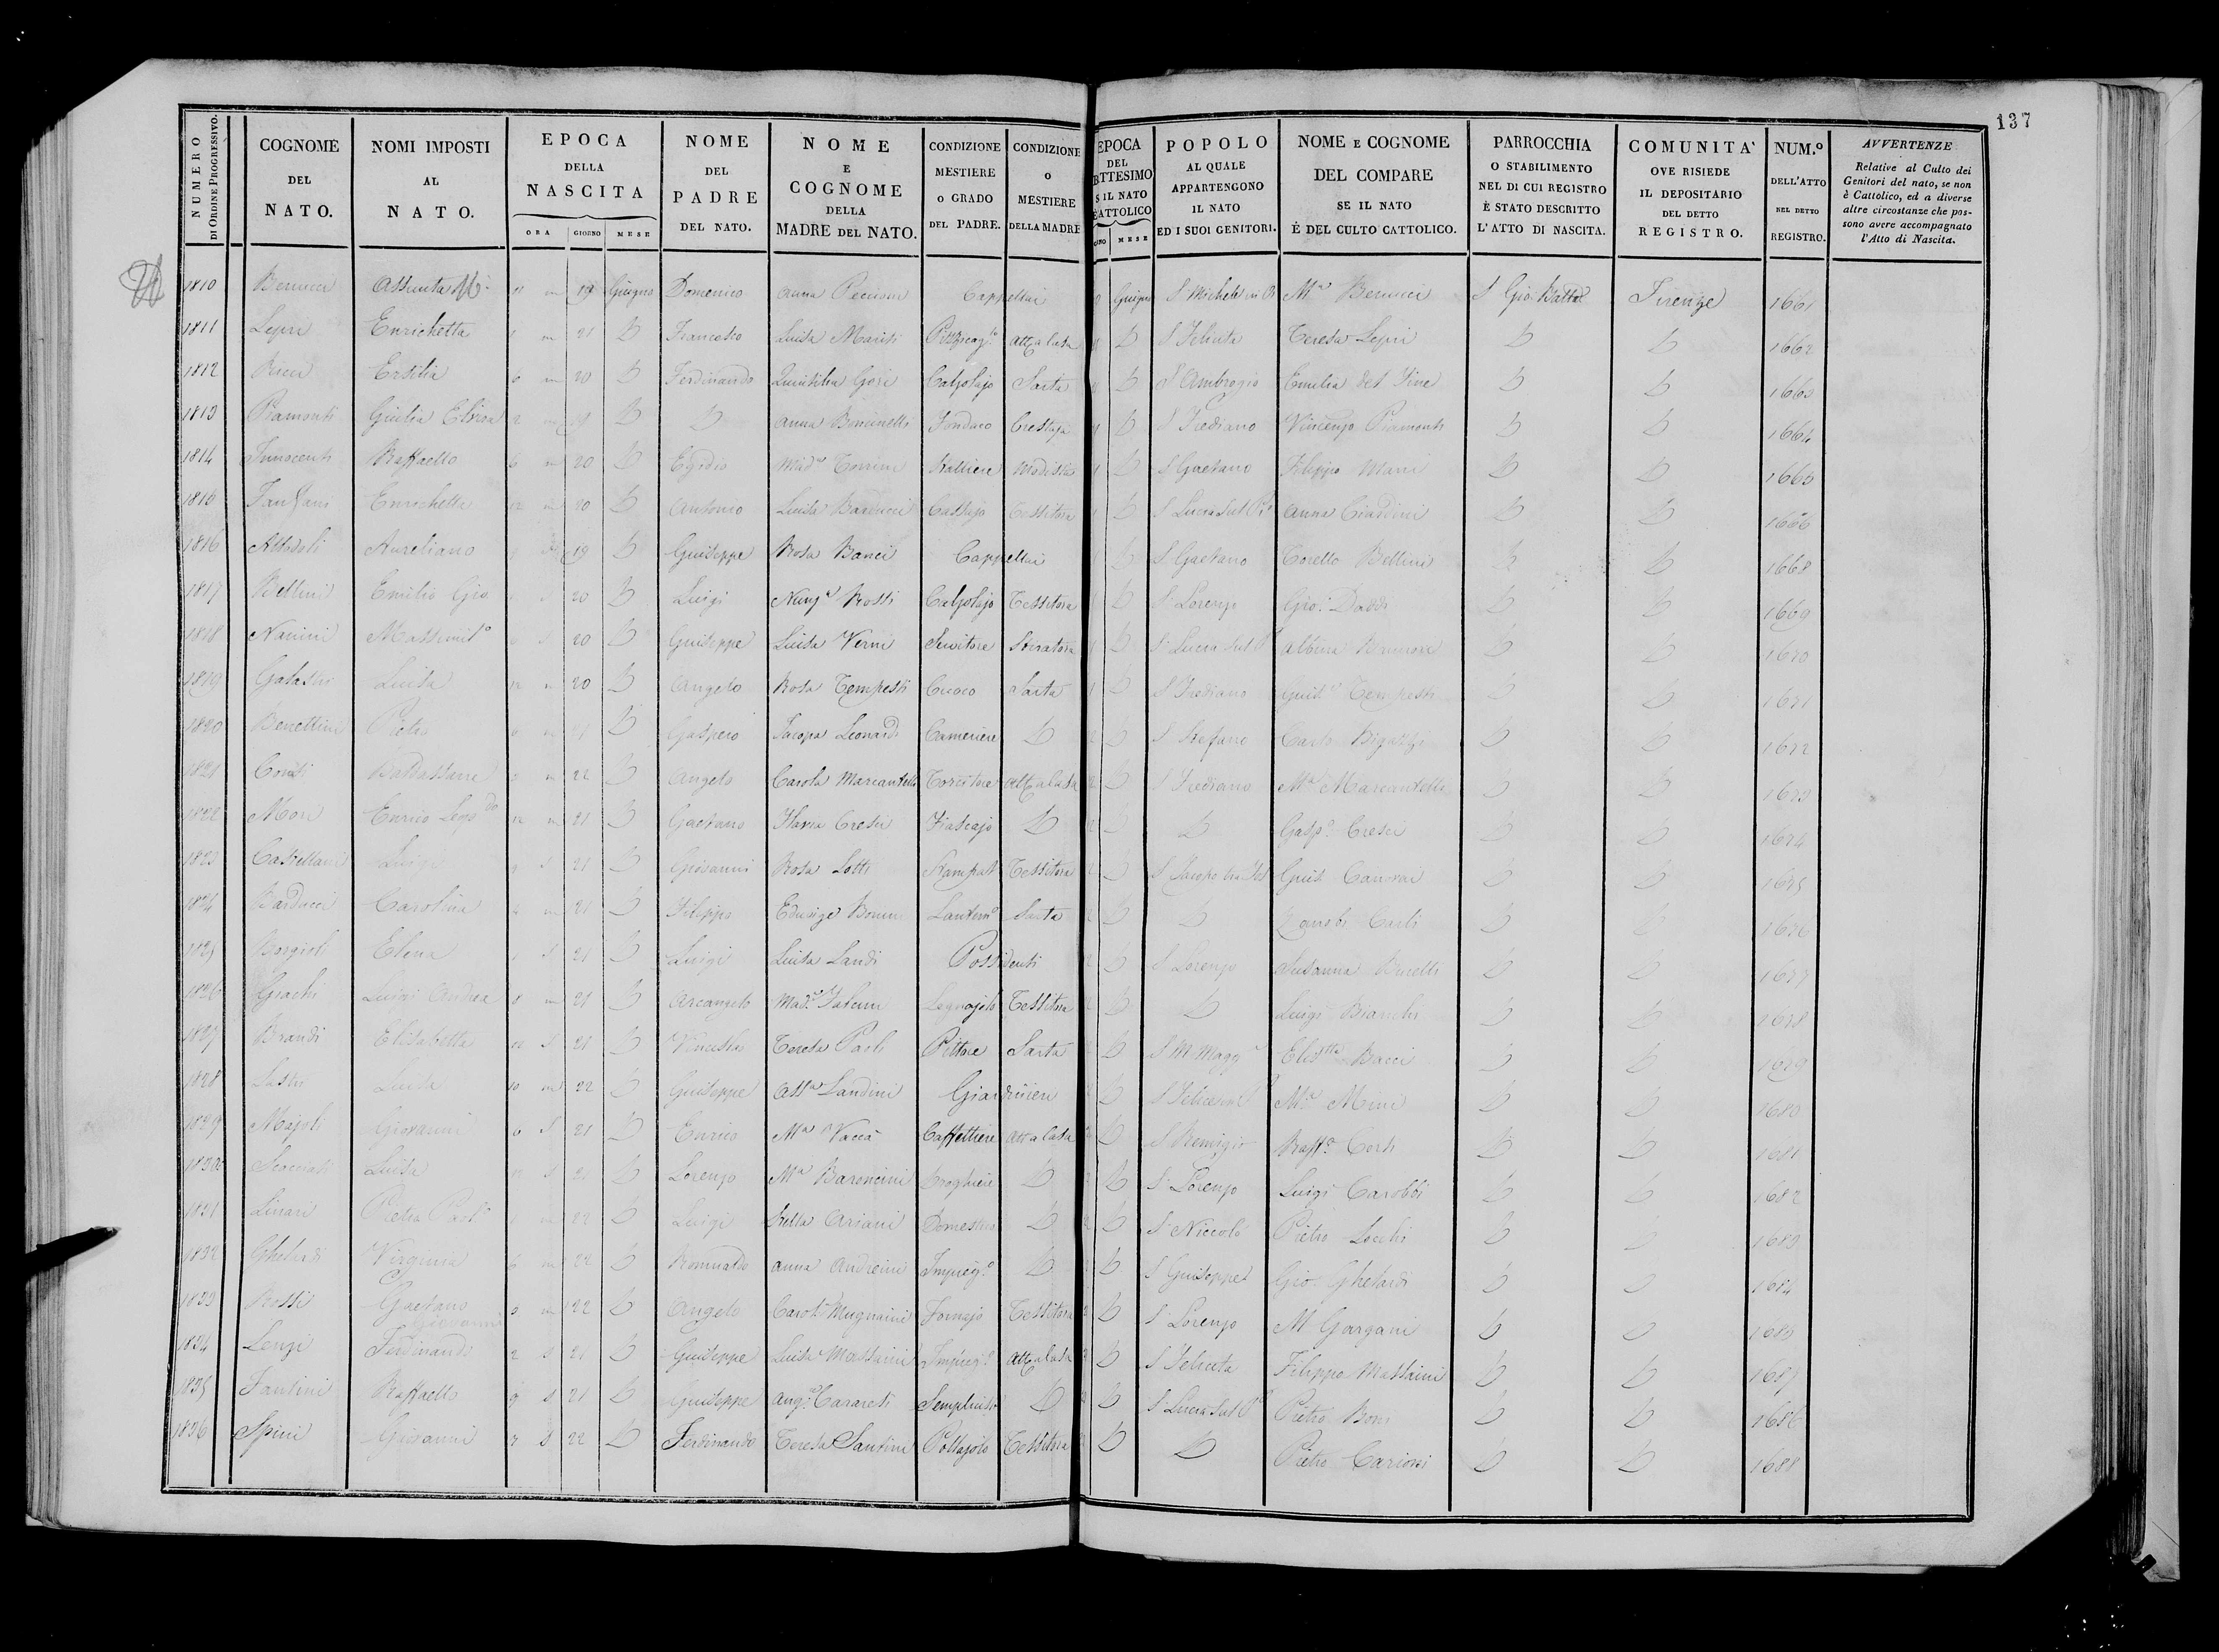 137
NUMERO DI ORDINE PROGRESSIVO. COGNOME DEL NATO. NOMI IMPOSTI AL NATO. EPOCA DELLA NASCITA ORA GIORNO MESE NOME DEL PADRE DEL NATO. NOME E COGNOME DELLA MADRE DEL NATO. CONDIZIONE MESTIERE O GRADO DEL PADRE. CONDIZIONE O MESTIERE DELLA MADRE EPOCA DEL BATTESIMO S IL NATO È CATTOLICO GIORNO MESE POPOLO AL QUALE APPARTENGONO IL NATO ED I SUOI GENITORI. NOME E COGNOME DEL COMPARE SE IL NATO È DEL CULTO CATTOLICO. PARROCCHIA O STABILIMENTO NEL DI CUI REGISTRO È STATO DESCRITTO L'ATTO DI NASCITA. COMUNITA' OVE RISIEDE IL DEPOSITARIO DEL DETTO REGISTRO. NUM.º DELL'ATTO NEL DETTO REGISTRO. AVVERTENZE Relative al Culto dei Genitori del nato, se non è Cattolico, ed a diverse altre circostanze che possono avere accompagnato l'Atto di Nascita.
1810 Benucci Assunta 11 m 19 Giugno Domenico Anna Cappellai Giugno S Michele M.a Benucci S Gio. Batta Firenze 1661
1811 Lepri Enrichetta m 21 D Francesco Luisa Pizzicag.lo Att a casa D S Felicita Teresa Lepri D D 1662
1812 Ricci Ersilia 6 m 20 D Ferdinando Quintilia Gori Calzolajo Sarta D S Ambrogio Emilia del Fine D D 1663
1813 Piamonti Giulia Elvira 2 m 19 D D Anna Boncinelli Fondaco Crestaja D S Frediano Vincenzo Piamonti D D 1664
1814 Innocenti Raffaello 6 m 20 D Egidio Mad.a Torrini Modista D S Gaetano Filippo Mani D D 1665
1815 Fanfani Enrichetta 12 m 20 D Antonio Luisa Barducci Tessitora D S Lucia sul Pr. Anna Ciardini D D 1666
1816 Aureliano 19 D Giuseppe Rosa Banci Cappellai D S Gaetano Torello Bellini D D 1668
1817 Bellini Emilio Gio S 20 D Luigi Nunz.a Rossi Calzolajo Tessitora D S. Lorenzo Gio. Daddi D D 1669
1818 Nannini Massimil.o S 20 D Giuseppe Luisa Verni Servitore Stiratora D S. Lucia sul P. Albina D D 1670
1819 Galastri Luisa 12 20 D Angelo Rosa Tempesti Cuoco Sarta D S Frediano Giul.a Tempesti D D 1671
1820 Benettini Pietro 6 m 21 D Gaspero Jacopa Leonardi Cameriere D D S Stefano Carlo Bigazzi D D 1672
1821 Conti Baldassarre m 22 D Angelo Carola Marcantelli Torcitore Att a casa D S Frediano M.a Marcantelli D D 1673
1822 Mori Enrico Leop.do 12 m 21 D Gaetano Flavia Cresci Fiascajo D D D Gasp.o Cresci D D 1674
1823 Castellani Luigi S 21 D Giovanni Rosa Lotti Stampat. Tessitora D S Jacopo tra Fos. Gius. Canovai D D 1675
1824 Barducci Carolina 4 m 21 D Filippo Edwige Lantern.o Sarta D D Zanobi Carli D D 1676
1825 Borgioli Elena 1 S 21 D Luigi Luisa Landi Possidenti D S Lorenzo Susanna D D 1677
1826 Giachi Luigi Andrea 8 m 21 D Arcangelo Mad.a Legnajolo Tessitora D D Luigi Bianchi D D 1678
1827 Brandi Elisabetta 12 S 21 D Vinceslao Teresa Paoli Pittore Sarta D S M Magg. Elis.tta Bacci D D 1679
1828 Luisa 10 m 22 D Giuseppe Ass.a Landini Giardiniere D M.a Mini D D 1680
1829 Majoli Giovanni 6 S 21 D Enrico M.a Vacca Caffettiere Att a casa D S Remigio Raff.o Corti D D 1681
1830 Scacciati Luisa 12 S 21 D Lorenzo M.a Barencini Droghiere D D S. Lorenzo Luigi Carobbi D D 1682
1831 Linari Pietro Paolo m 22 D Luigi Stella Ariani Domestico D D S. Niccolò Pietro Lochi D D 1683
1832 Ghelardi Virginia 6 m 22 D Romualdo Anna Andreini Impieg.o D D S Giuseppe Gio. Ghelardi D D 1684
1833 Rossi Gaetano Giovanni m 22 D Angelo Carol. Mugnaini Fornajo Tessitora D S. Lorenzo M Gargani D D 1685
1834 Lenzi Ferdinando 2 S 21 D Giuseppe Luisa Massaini Impieg.o Att a casa D S Felicita Filippo Massaini D D 1687
1835 Fantini Raffaello 9 S 21 D Giuseppe Semplicista D D S. Lucia sul P. Pietro Boni D D 1686
1836 Spini Giovanni 7 S 22 D Ferdinando Teresa Santini Pollajolo Tessitora D D Pietro Carioni D D 1688